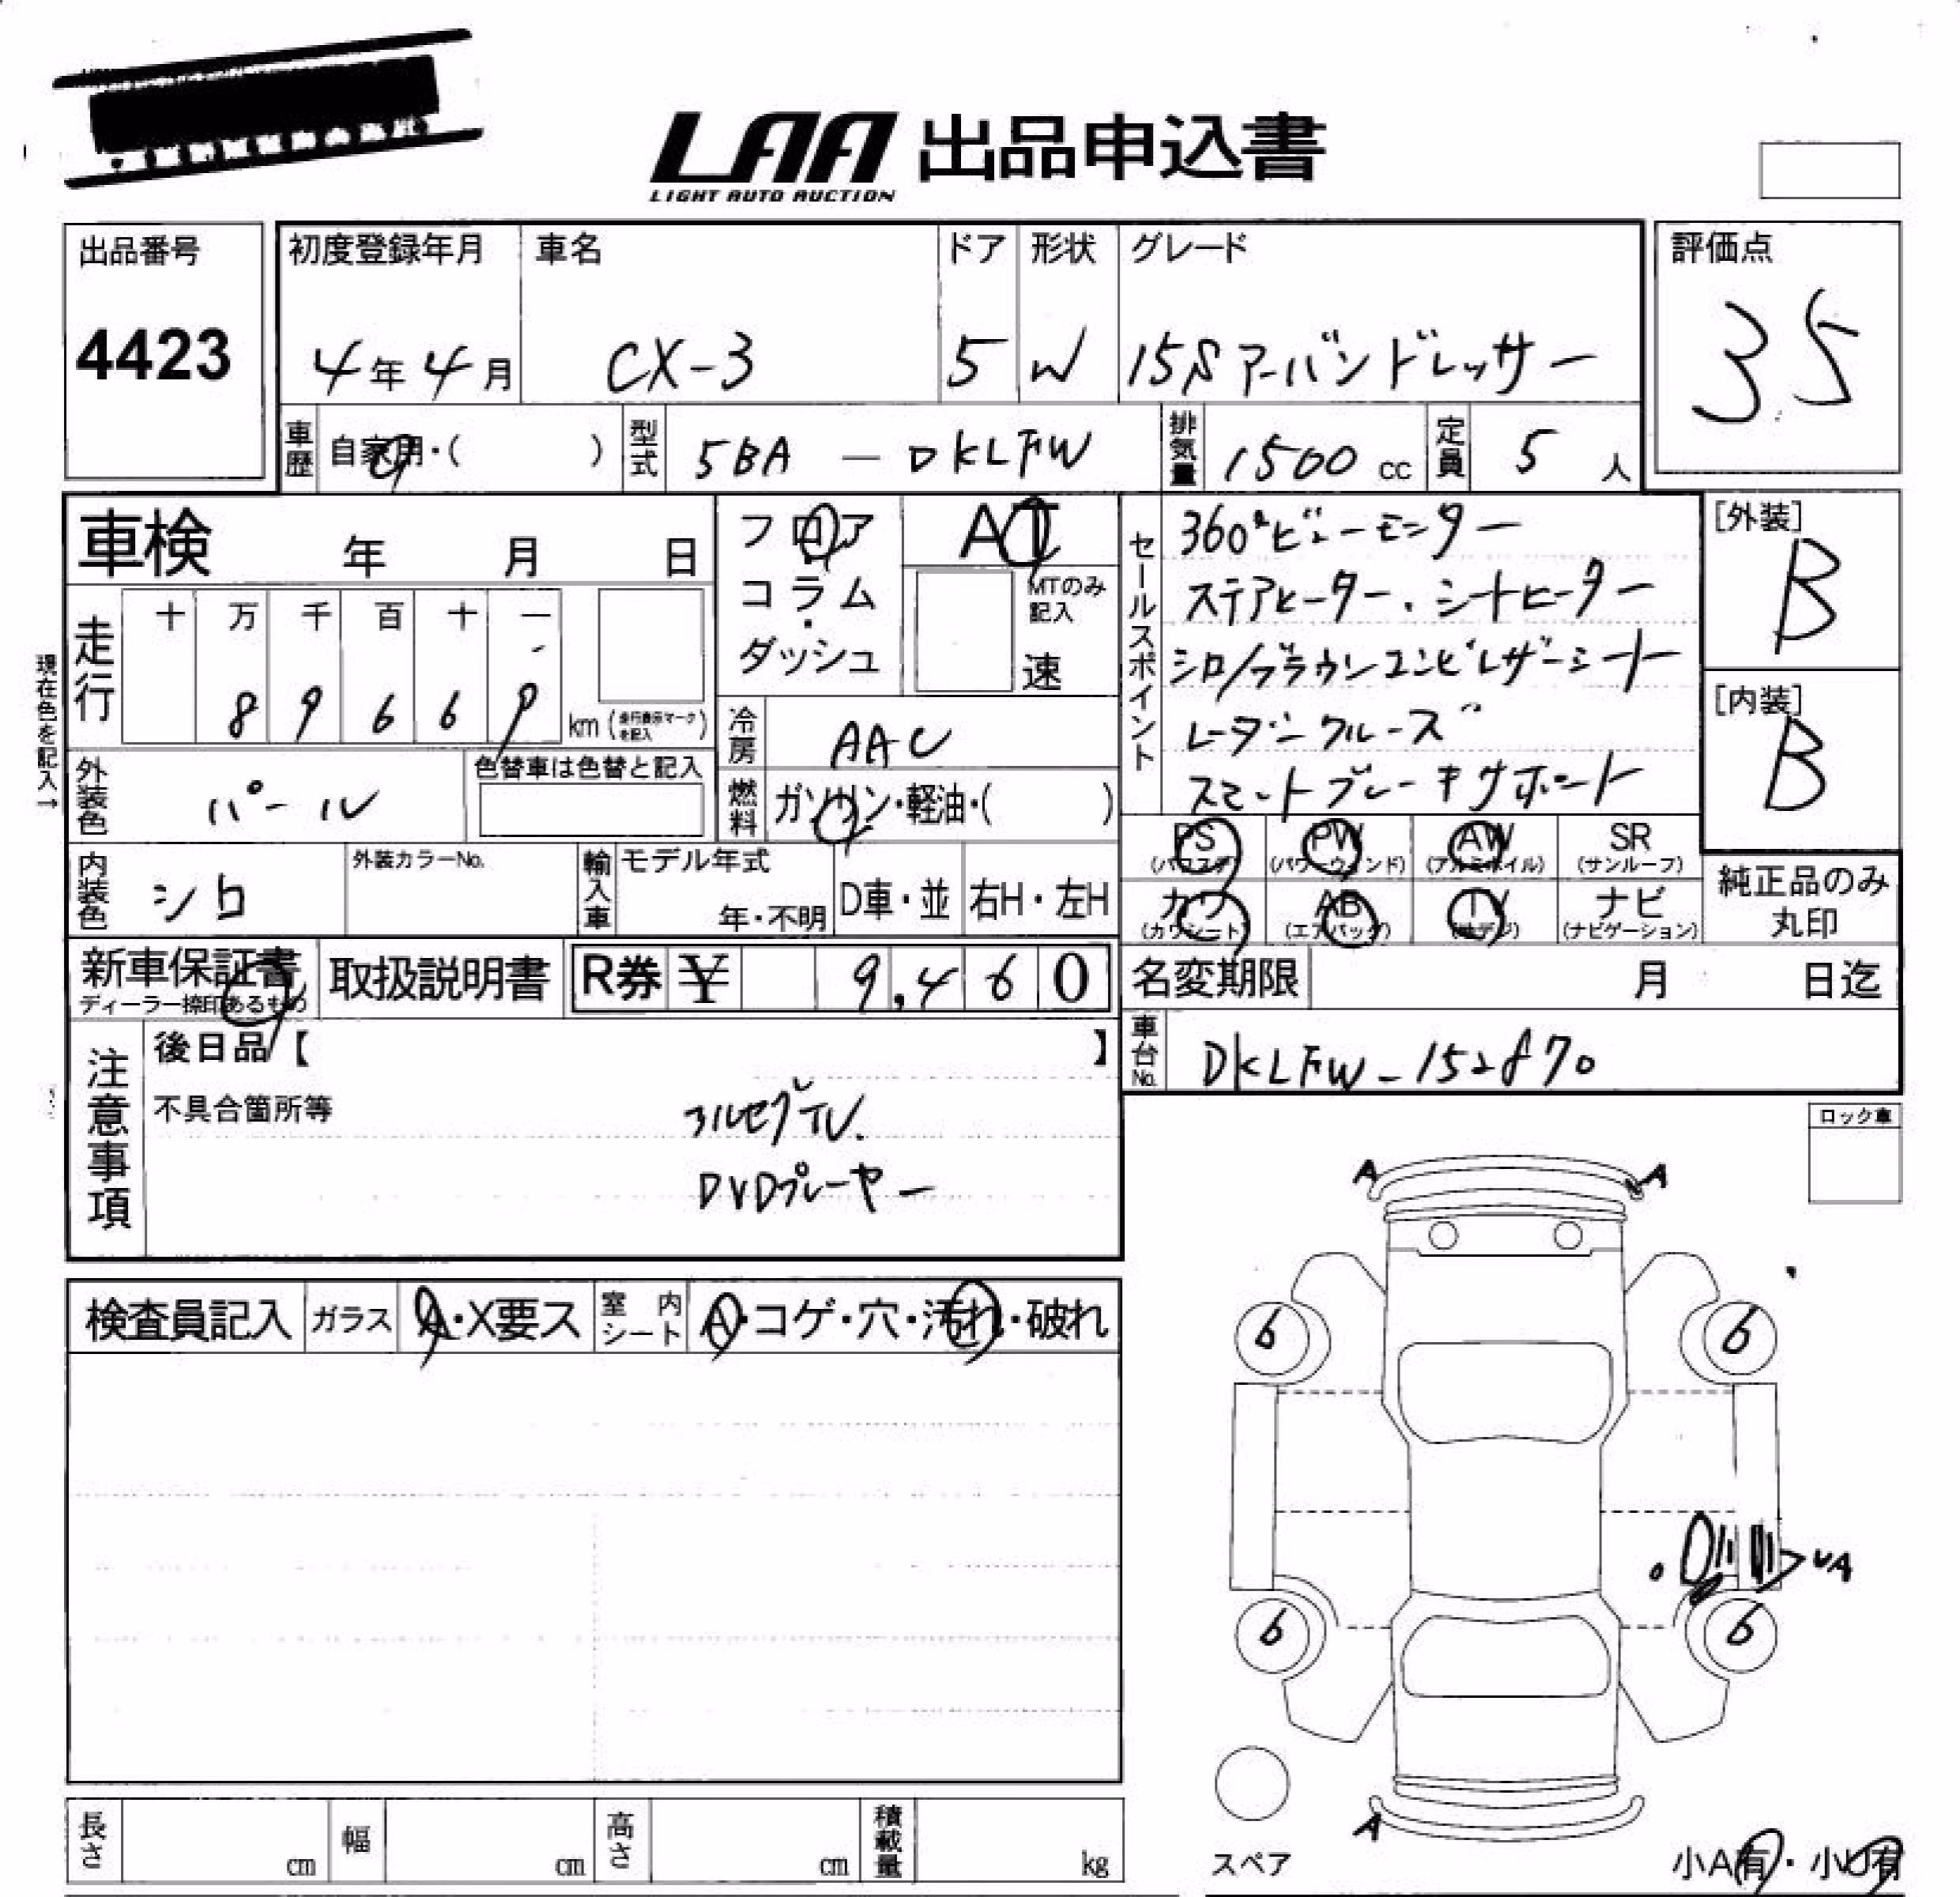 LAA 出品申込書
LIGHT AUTO AUCTION
出品番号
4423
初度登録年月
4年4月
車名
CX-3
ドア
5
形状
W
グレード
15S アーバンドレッサー
評価点
35
車歴
自家用・( )
型式
5BA — DKLFW
排気量
1500 cc
定員
5 人
車検 年 月 日
現在色を記入→
走行
十 万 千 百 十 一
8 9 6 6 9
km (走行表示マークを記入)
フロア
・
コラム
・
ダッシュ
AT
MTのみ
記入
速
冷房
AAC
燃料
ガソリン・軽油・( )
セールスポイント
360°ビューモニター
ステアヒーター、シートヒーター
シロ/ブラウンコンビレザーシート
レーダークルーズ
スマートブレーキサポート
[外装]
B
[内装]
B
外装色
パール
色替車は色替と記入
内装色
シロ
外装カラーNo.
輸入車
モデル年式
年・不明
D車・並
右H・左H
PS
(パワステ)
PW
(パワーウィンド)
AW
(アルミホイル)
SR
(サンルーフ)
カワ
(カワシート)
AB
(エアバッグ)
TV
(地デジ)
ナビ
(ナビゲーション)
純正品のみ
丸印
新車保証書
ディーラー捺印あるもの
取扱説明書
R券 ¥ 9,460
名変期限 月 日迄
車台No.
DKLFW-152870
注意事項
後日品【 】
不具合箇所等
フルセグTV.
DVDプレーヤー
ロック車
A A
検査員記入
ガラス
A・X要ス
室内
シート
A・コゲ・穴・汚れ・破れ
6 6
UA
6 6
A
スペア
小A有・小U有
長さ cm
幅 cm
高さ cm
積載量 kg